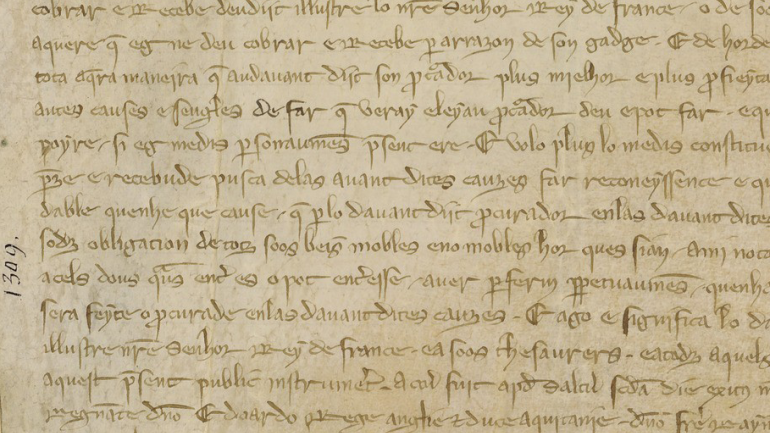 cobrar e Recebe deudiit illustre lo nre Senhor Rey de france o de so
aquere q eg ne deu cobrar e Recebe p arrazon de son gadge E de
tota aqra maneira q audauant diit son pcador plus mielhor e plus pfieyta
autes causes e sengles de far q veray e leyau pcador deu e pot far e qu
poyre si eg medis psonaumes psent ere E volo plus lo medis constitui
pze e recebude pusca delas auant dites cauzes far reconeyssence e qu
dable quenhe que cause q p lo dauant diit pcurador en las dauant dites
sodz obligacion de totz soos beis mobles e no mobles hor ques sian
acels dous qus entr es o pot entresse auer p ferm ppetuaumes quenhe
sera feyte o pcurade en las dauant dites cauzes E ago e significa lo da
illustre nre Senhor Rey de france e a soos thesaurers e a totz aquels
aquest psent public instrumet Acui fuit die exitus m
Regnate dno Edoardo Rege anglie et duce aquitanie dno
1309.